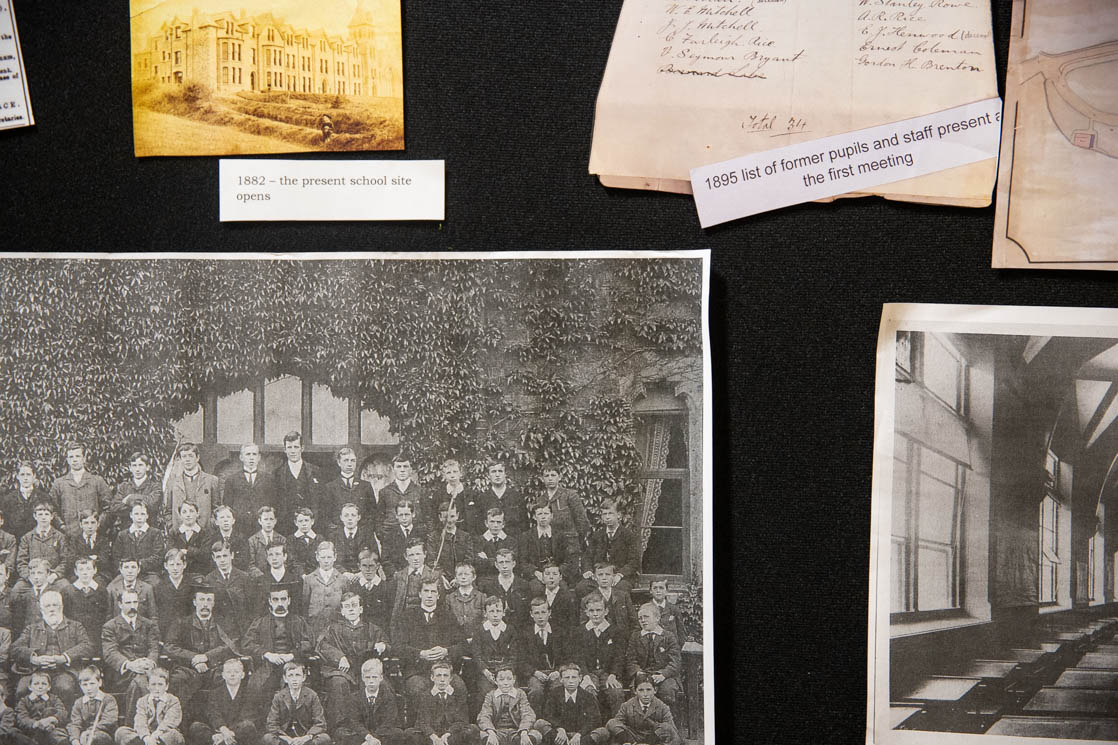 the
ACE.
1882 – the present school site
opens
W. E. Mitchell
J. J. Mitchell
C. Farleigh Rice
V. Seymour Bryant
W. Stanley Rowe
A. R. Rice
C. J. Henwood
Ernest Coleman
Gordon H. Brenton
Total 34
1895 list of former pupils and staff present a
the first meeting